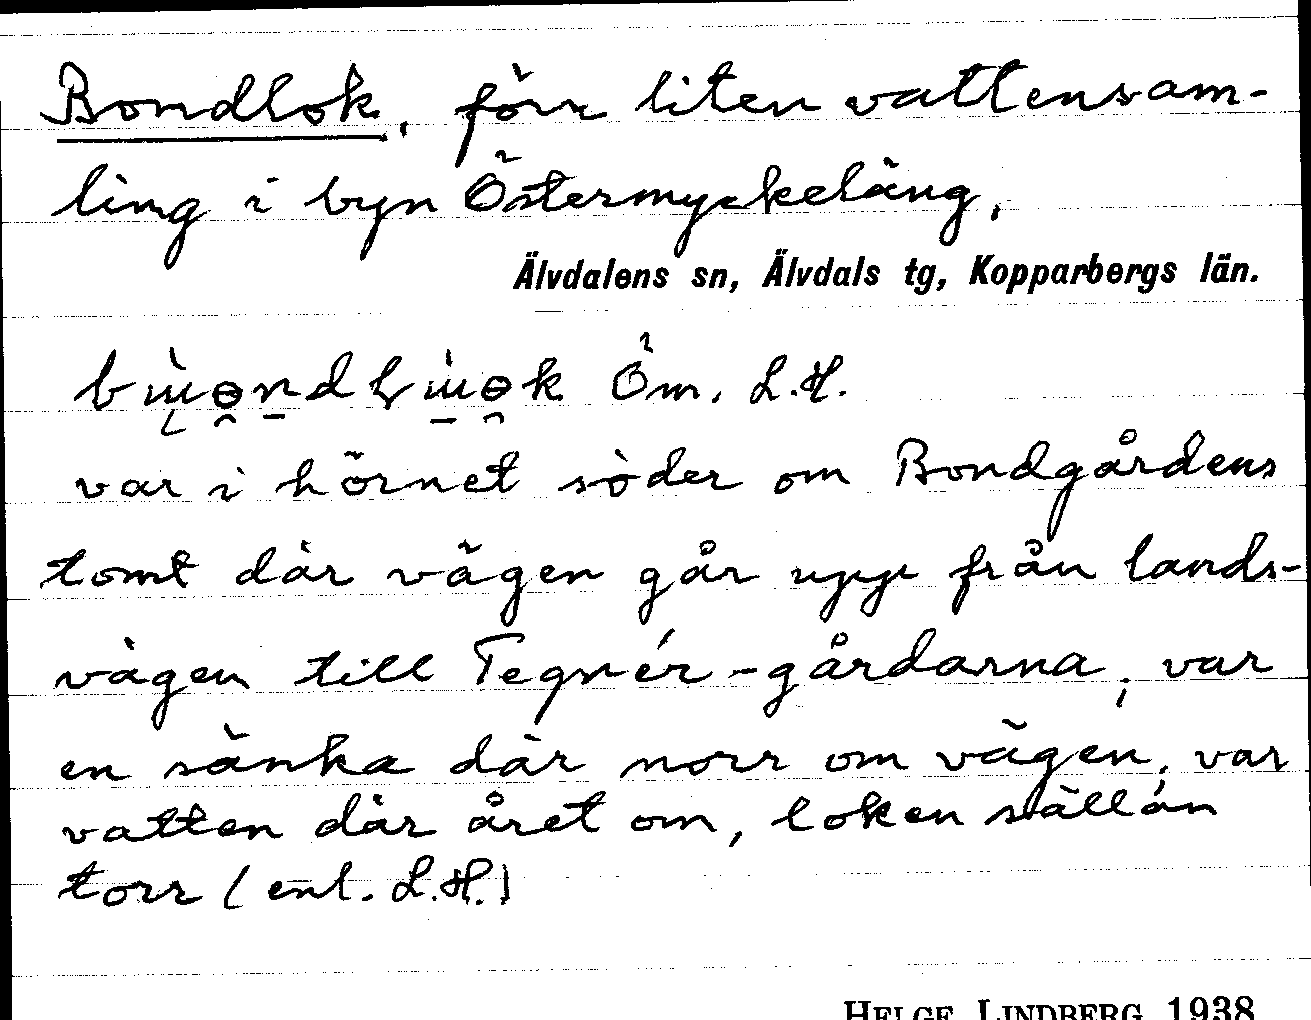 Bondlok, förr liten vattensam-
ling i byn Östermyckeläng,
Älvdalens sn, Älvdals tg, Kopparbergs län.
Öm. L.H.
var i hörnet söder om Bondgårdens
tomt där vägen går upp från lands-
vägen till Tegnér-gårdarna, var
en sänka där norr om vägen, var
vatten där året om, loken sällan
torr (enl. L.H.)
HELGE LINDBERG 1938